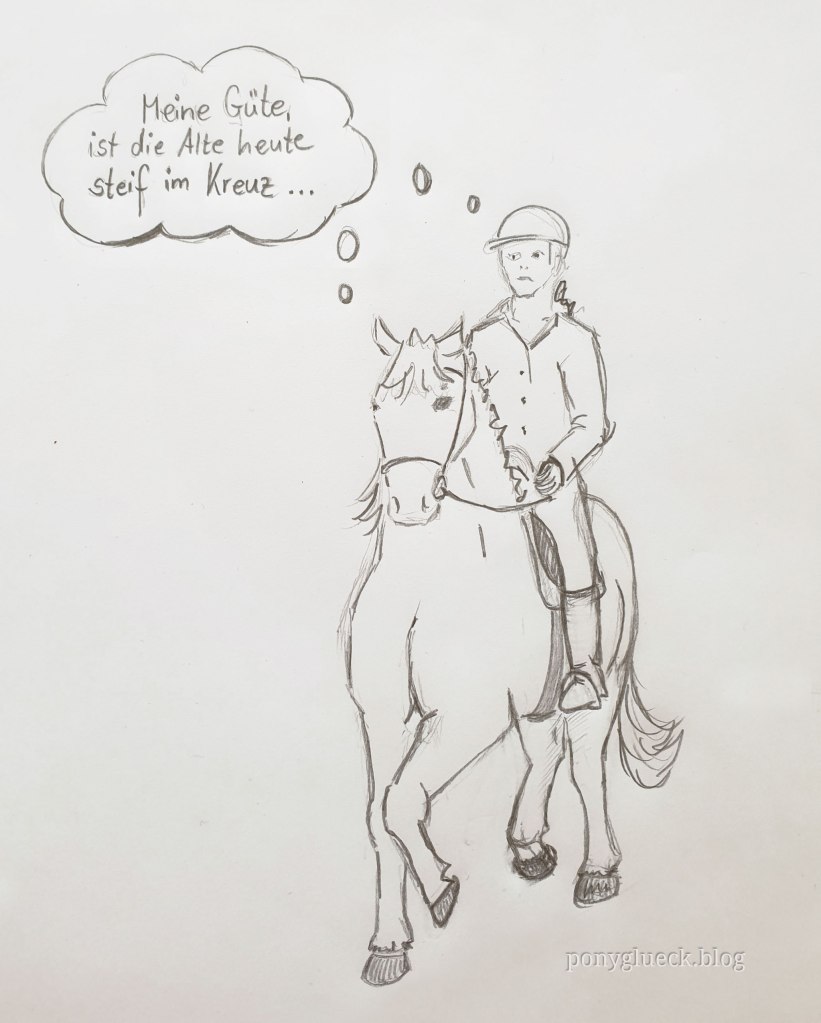 Meine Güte,
ist die Alte heute
steif im Kreuz ...
ponyglueck.blog